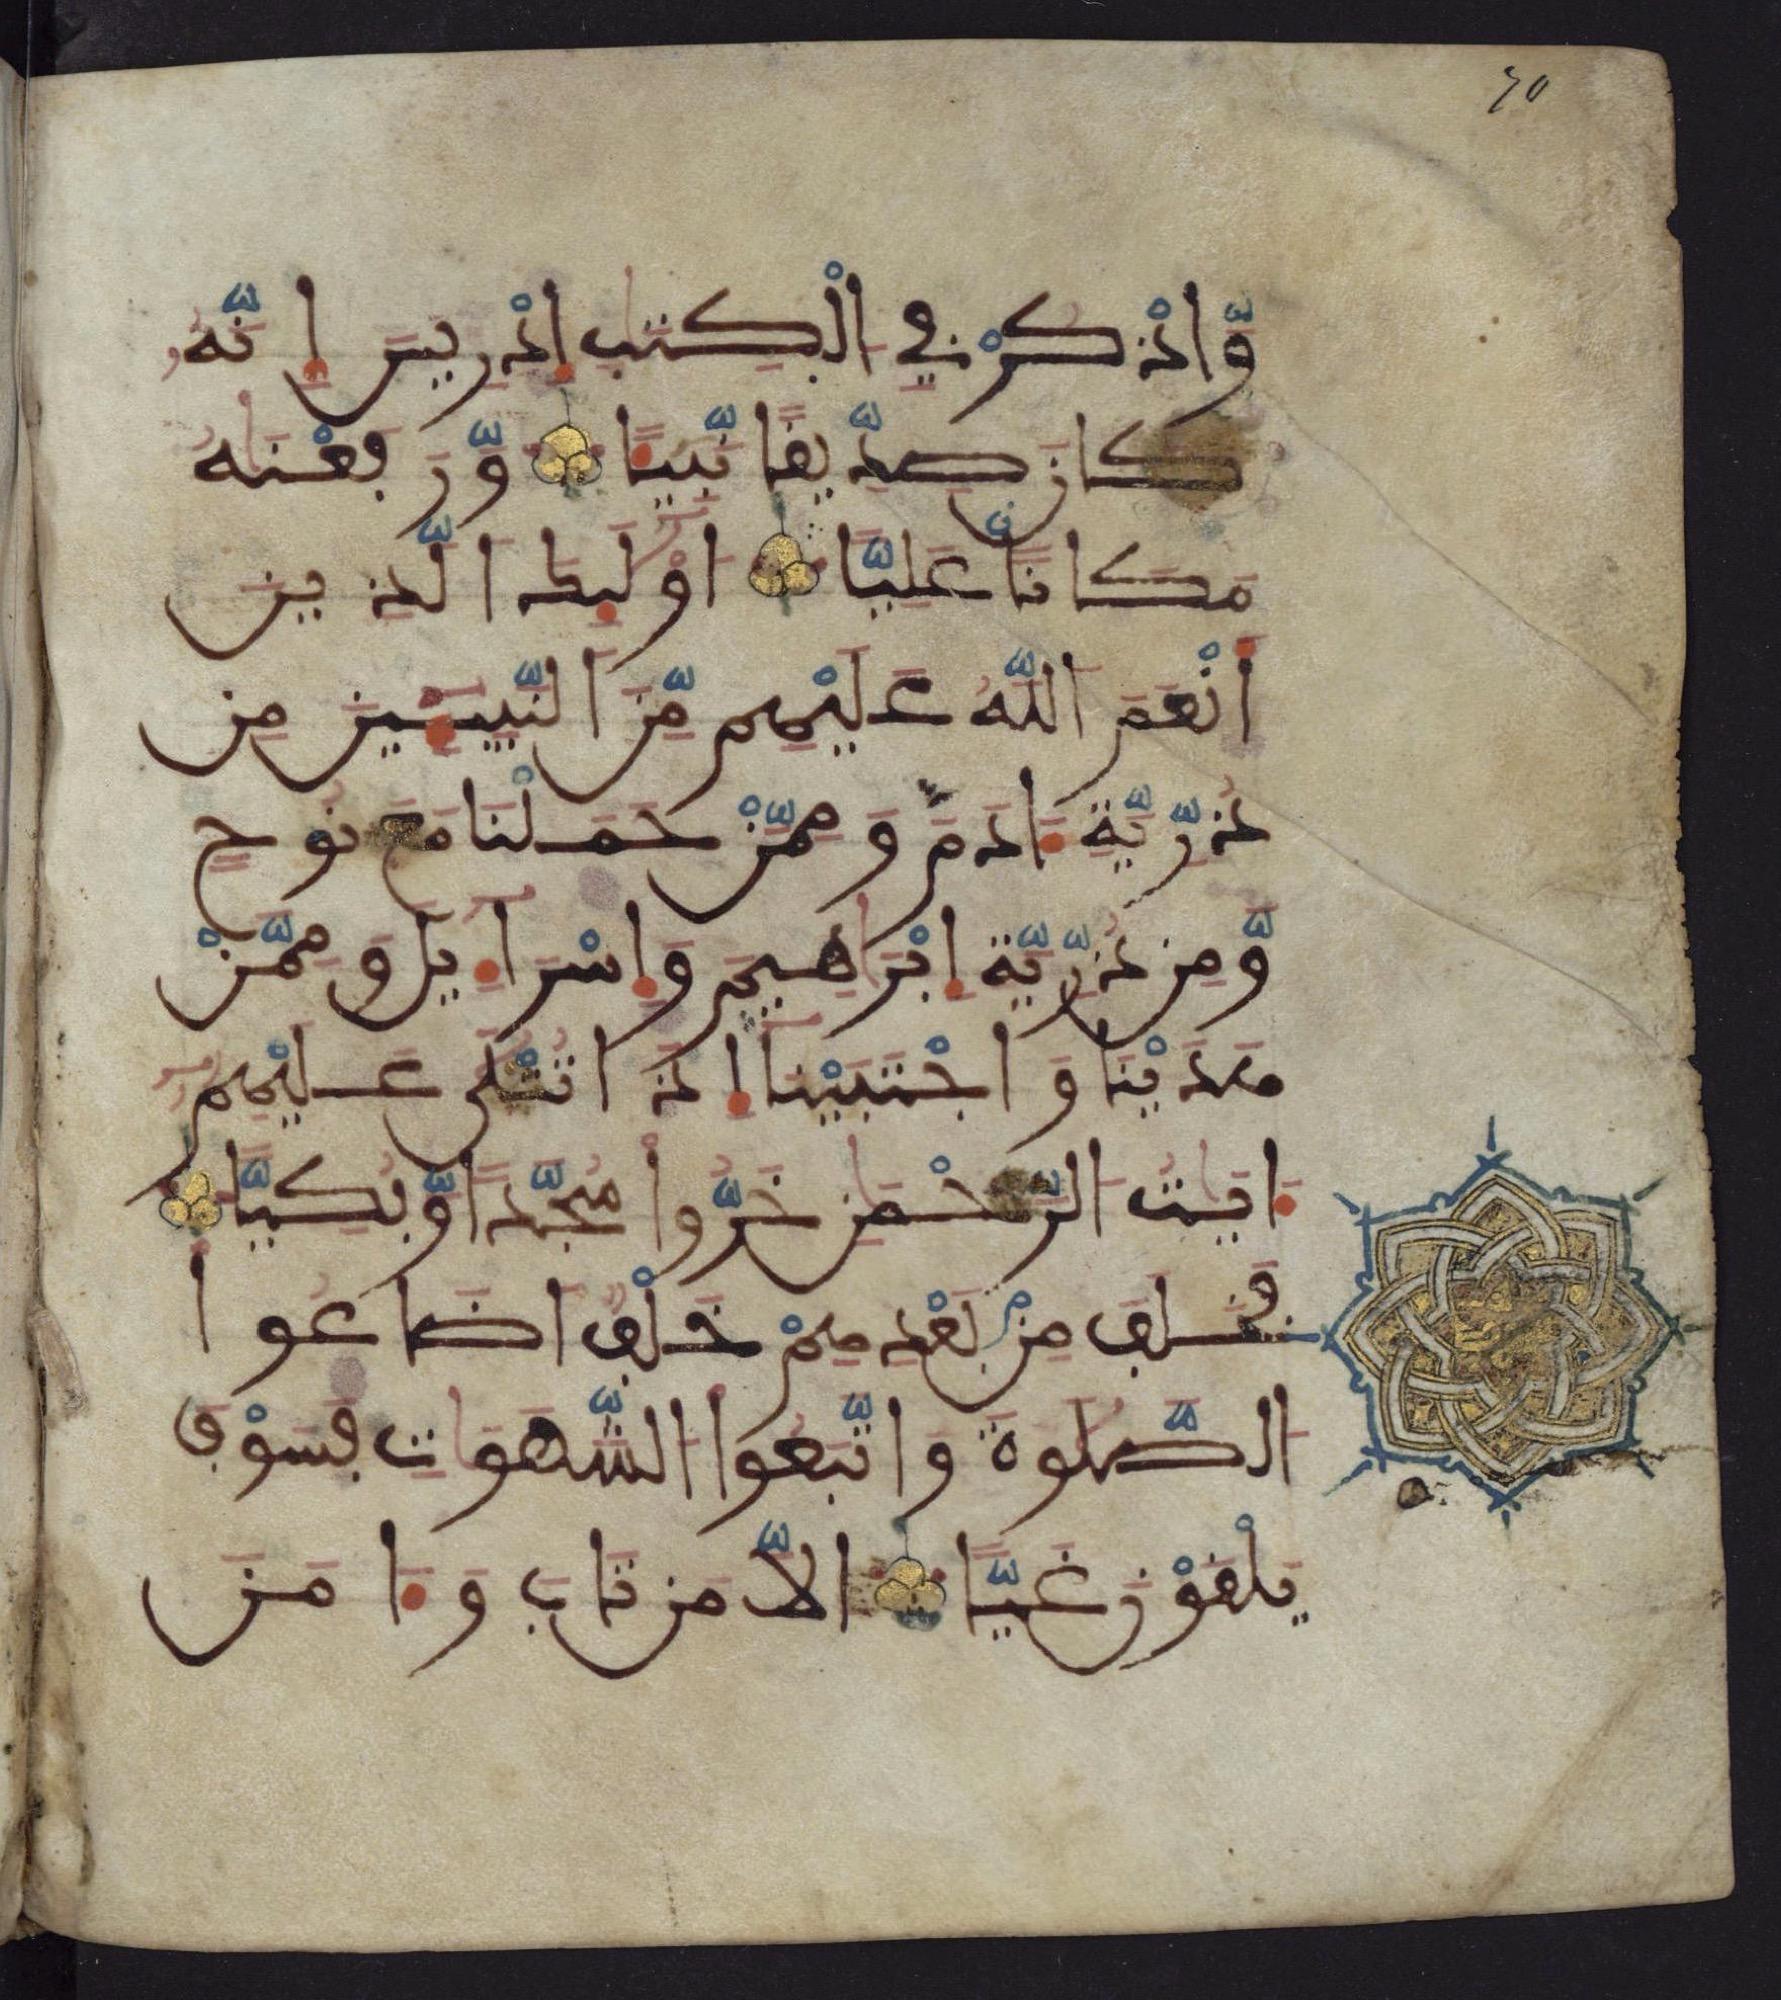 70
وَّاذْكُرْ فِي الْكِتَٰبِ إِدْرِيسَ إِنَّهُۥ
كَانَ صِدِّيقًا نَّبِيـًٔا وَّرَفَعْنَٰهُ
مَكَانًا عَلِيًّا أُوْلَٰٓئِكَ الَّذِينَ
أَنْعَمَ اللَّهُ عَلَيْهِم مِّنَ النَّبِيـِٕۧينَ مِن
ذُرِّيَّةِ ءَادَمَ وَمِمَّنْ حَمَلْنَا مَعَ نُوحٍ
وَّمِن ذُرِّيَّةِ إِبْرَٰهِيمَ وَإِسْرَآءِيلَ وَمِمَّنْ
هَدَيْنَا وَاجْتَبَيْنَآ إِذَا تُتْلَىٰ عَلَيْهِمُۥٓ
ءَايَٰتُ الرَّحْمَٰنِ خَرُّواْ سُجَّدًا وَّبُكِيًّا
فَخَلَفَ مِنۢ بَعْدِهِمْ خَلْفٌ أَضَاعُوا
الصَّلَوٰةَ وَاتَّبَعُوا الشَّهَوَٰتِ فَسَوْفَ
يَلْقَوْنَ غَيًّا إِلَّا مَن تَابَ وَءَامَنَ